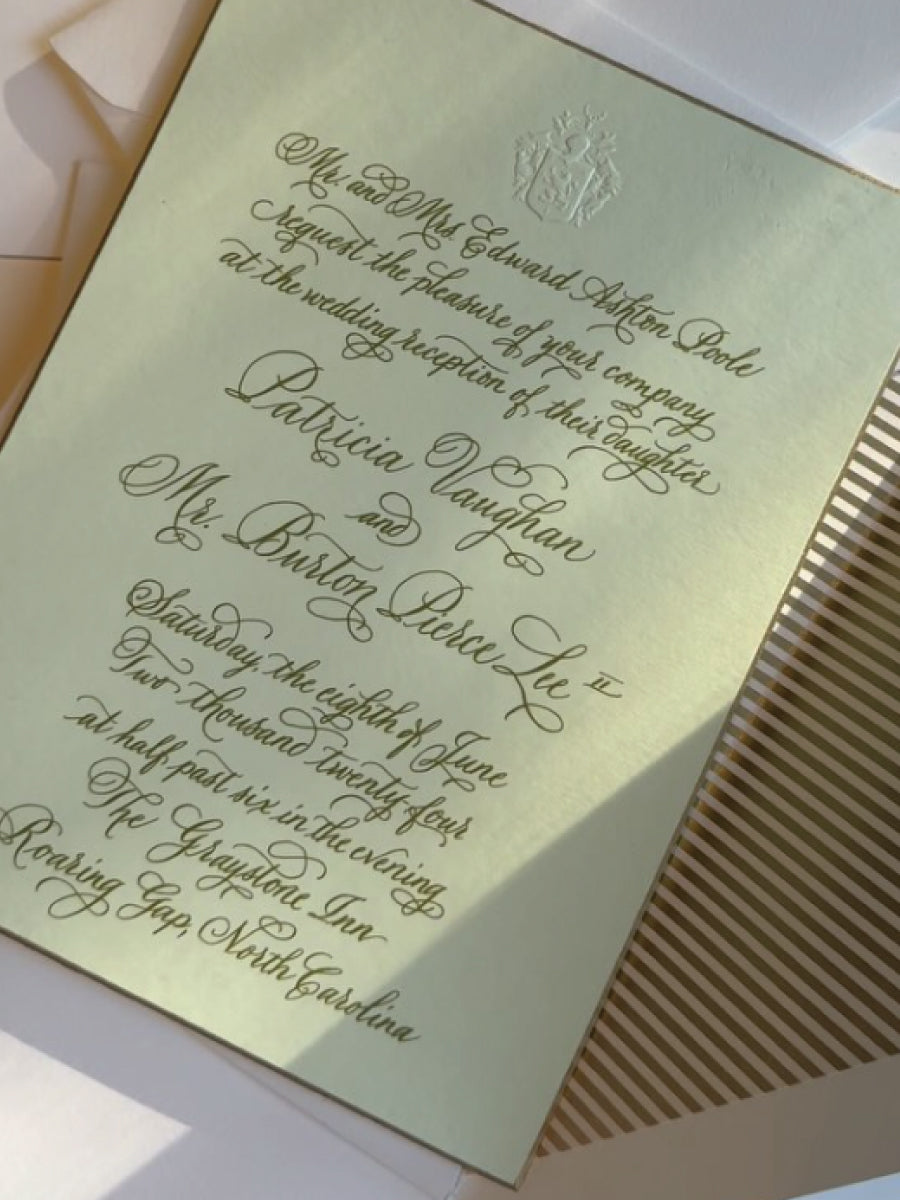 Mr. and Mrs. Edward Ashton Poole
request the pleasure of your company
at the wedding reception of their daughter
Patricia Vaughan
and
Mr. Burton Pierce Lee II
Saturday, the eighth of June
Two thousand twenty-four
at half past six in the evening
The Graystone Inn
Roaring Gap, North Carolina